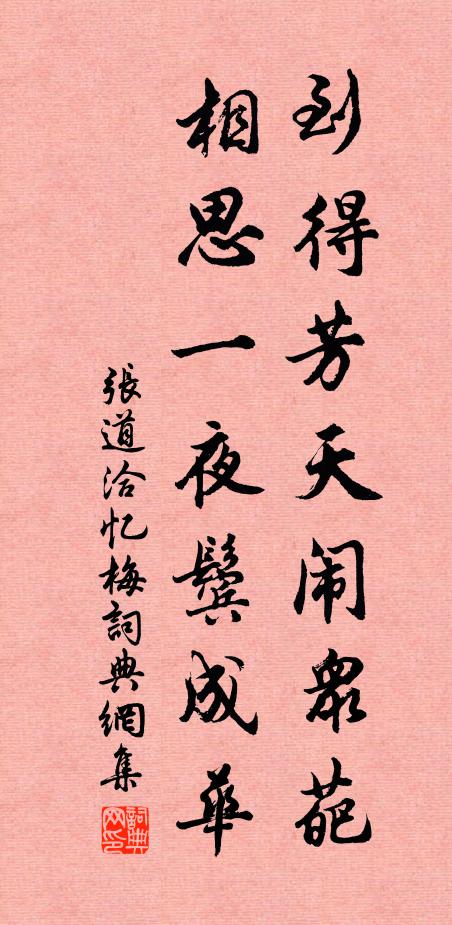 到得芳天闹眾葩
相思一夜鬓成華
張道洽忆梅詞典網集
詞典网印